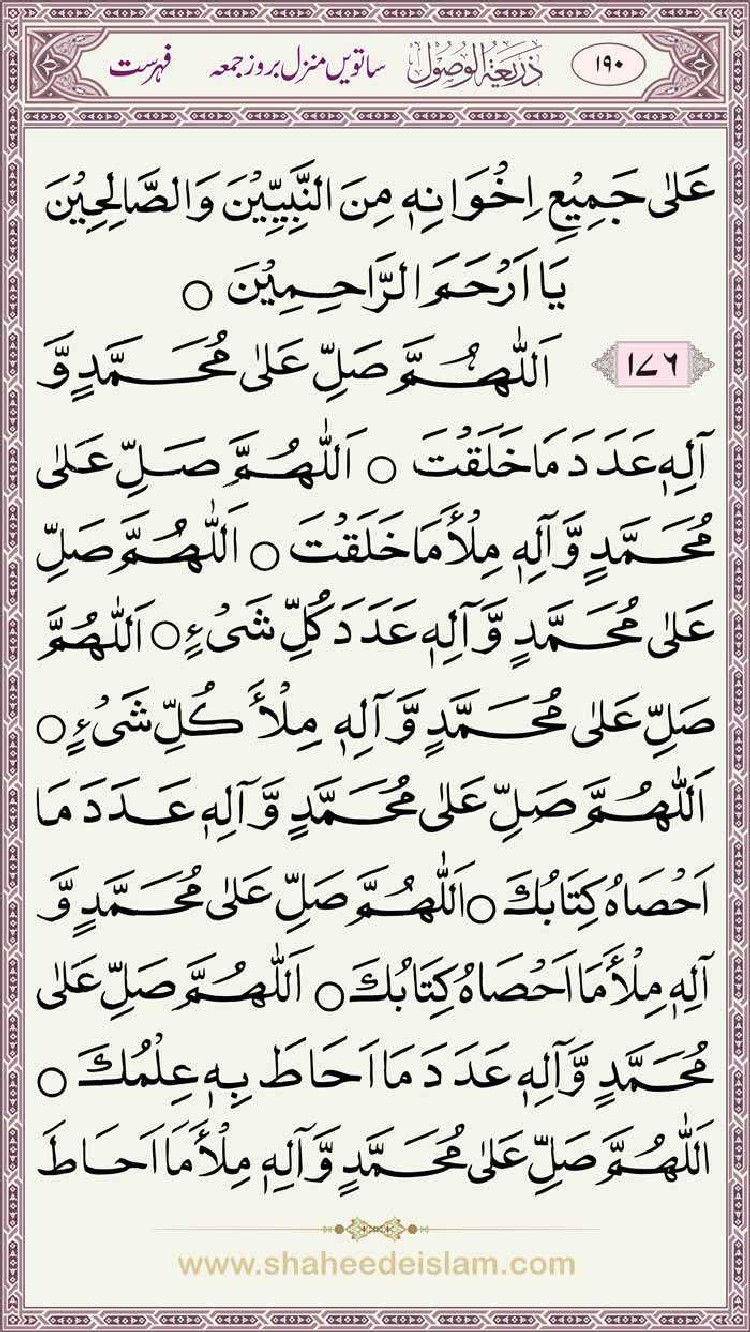 ۱۹۰ ذَرِیْعَۃُ الْوُصُوْل ساتویں منزل بروز جمعہ فہرست
عَلٰى جَمِيْعِ اِخْوَانِهٖ مِنَ النَّبِيِّيْنَ وَالصَّالِحِيْنَ
يَا اَرْحَمَ الرَّاحِمِيْنَ ○
۱۷۶ اَللّٰهُمَّ صَلِّ عَلٰى مُحَمَّدٍ وَّ
آلِهٖ عَدَدَ مَا خَلَقْتَ ○ اَللّٰهُمَّ صَلِّ عَلٰى
مُحَمَّدٍ وَّآلِهٖ مِلْأَ مَا خَلَقْتَ ○ اَللّٰهُمَّ صَلِّ
عَلٰى مُحَمَّدٍ وَّآلِهٖ عَدَدَ كُلِّ شَىْءٍ ○ اَللّٰهُمَّ
صَلِّ عَلٰى مُحَمَّدٍ وَّآلِهٖ مِلْأَ كُلِّ شَىْءٍ ○
اَللّٰهُمَّ صَلِّ عَلٰى مُحَمَّدٍ وَّآلِهٖ عَدَدَ مَا
اَحْصَاهُ كِتَابُكَ ○ اَللّٰهُمَّ صَلِّ عَلٰى مُحَمَّدٍ وَّ
آلِهٖ مِلْأَ مَا اَحْصَاهُ كِتَابُكَ ○ اَللّٰهُمَّ صَلِّ عَلٰى
مُحَمَّدٍ وَّآلِهٖ عَدَدَ مَا اَحَاطَ بِهٖ عِلْمُكَ ○
اَللّٰهُمَّ صَلِّ عَلٰى مُحَمَّدٍ وَّآلِهٖ مِلْأَ مَا اَحَاطَ
www.shaheedeislam.com